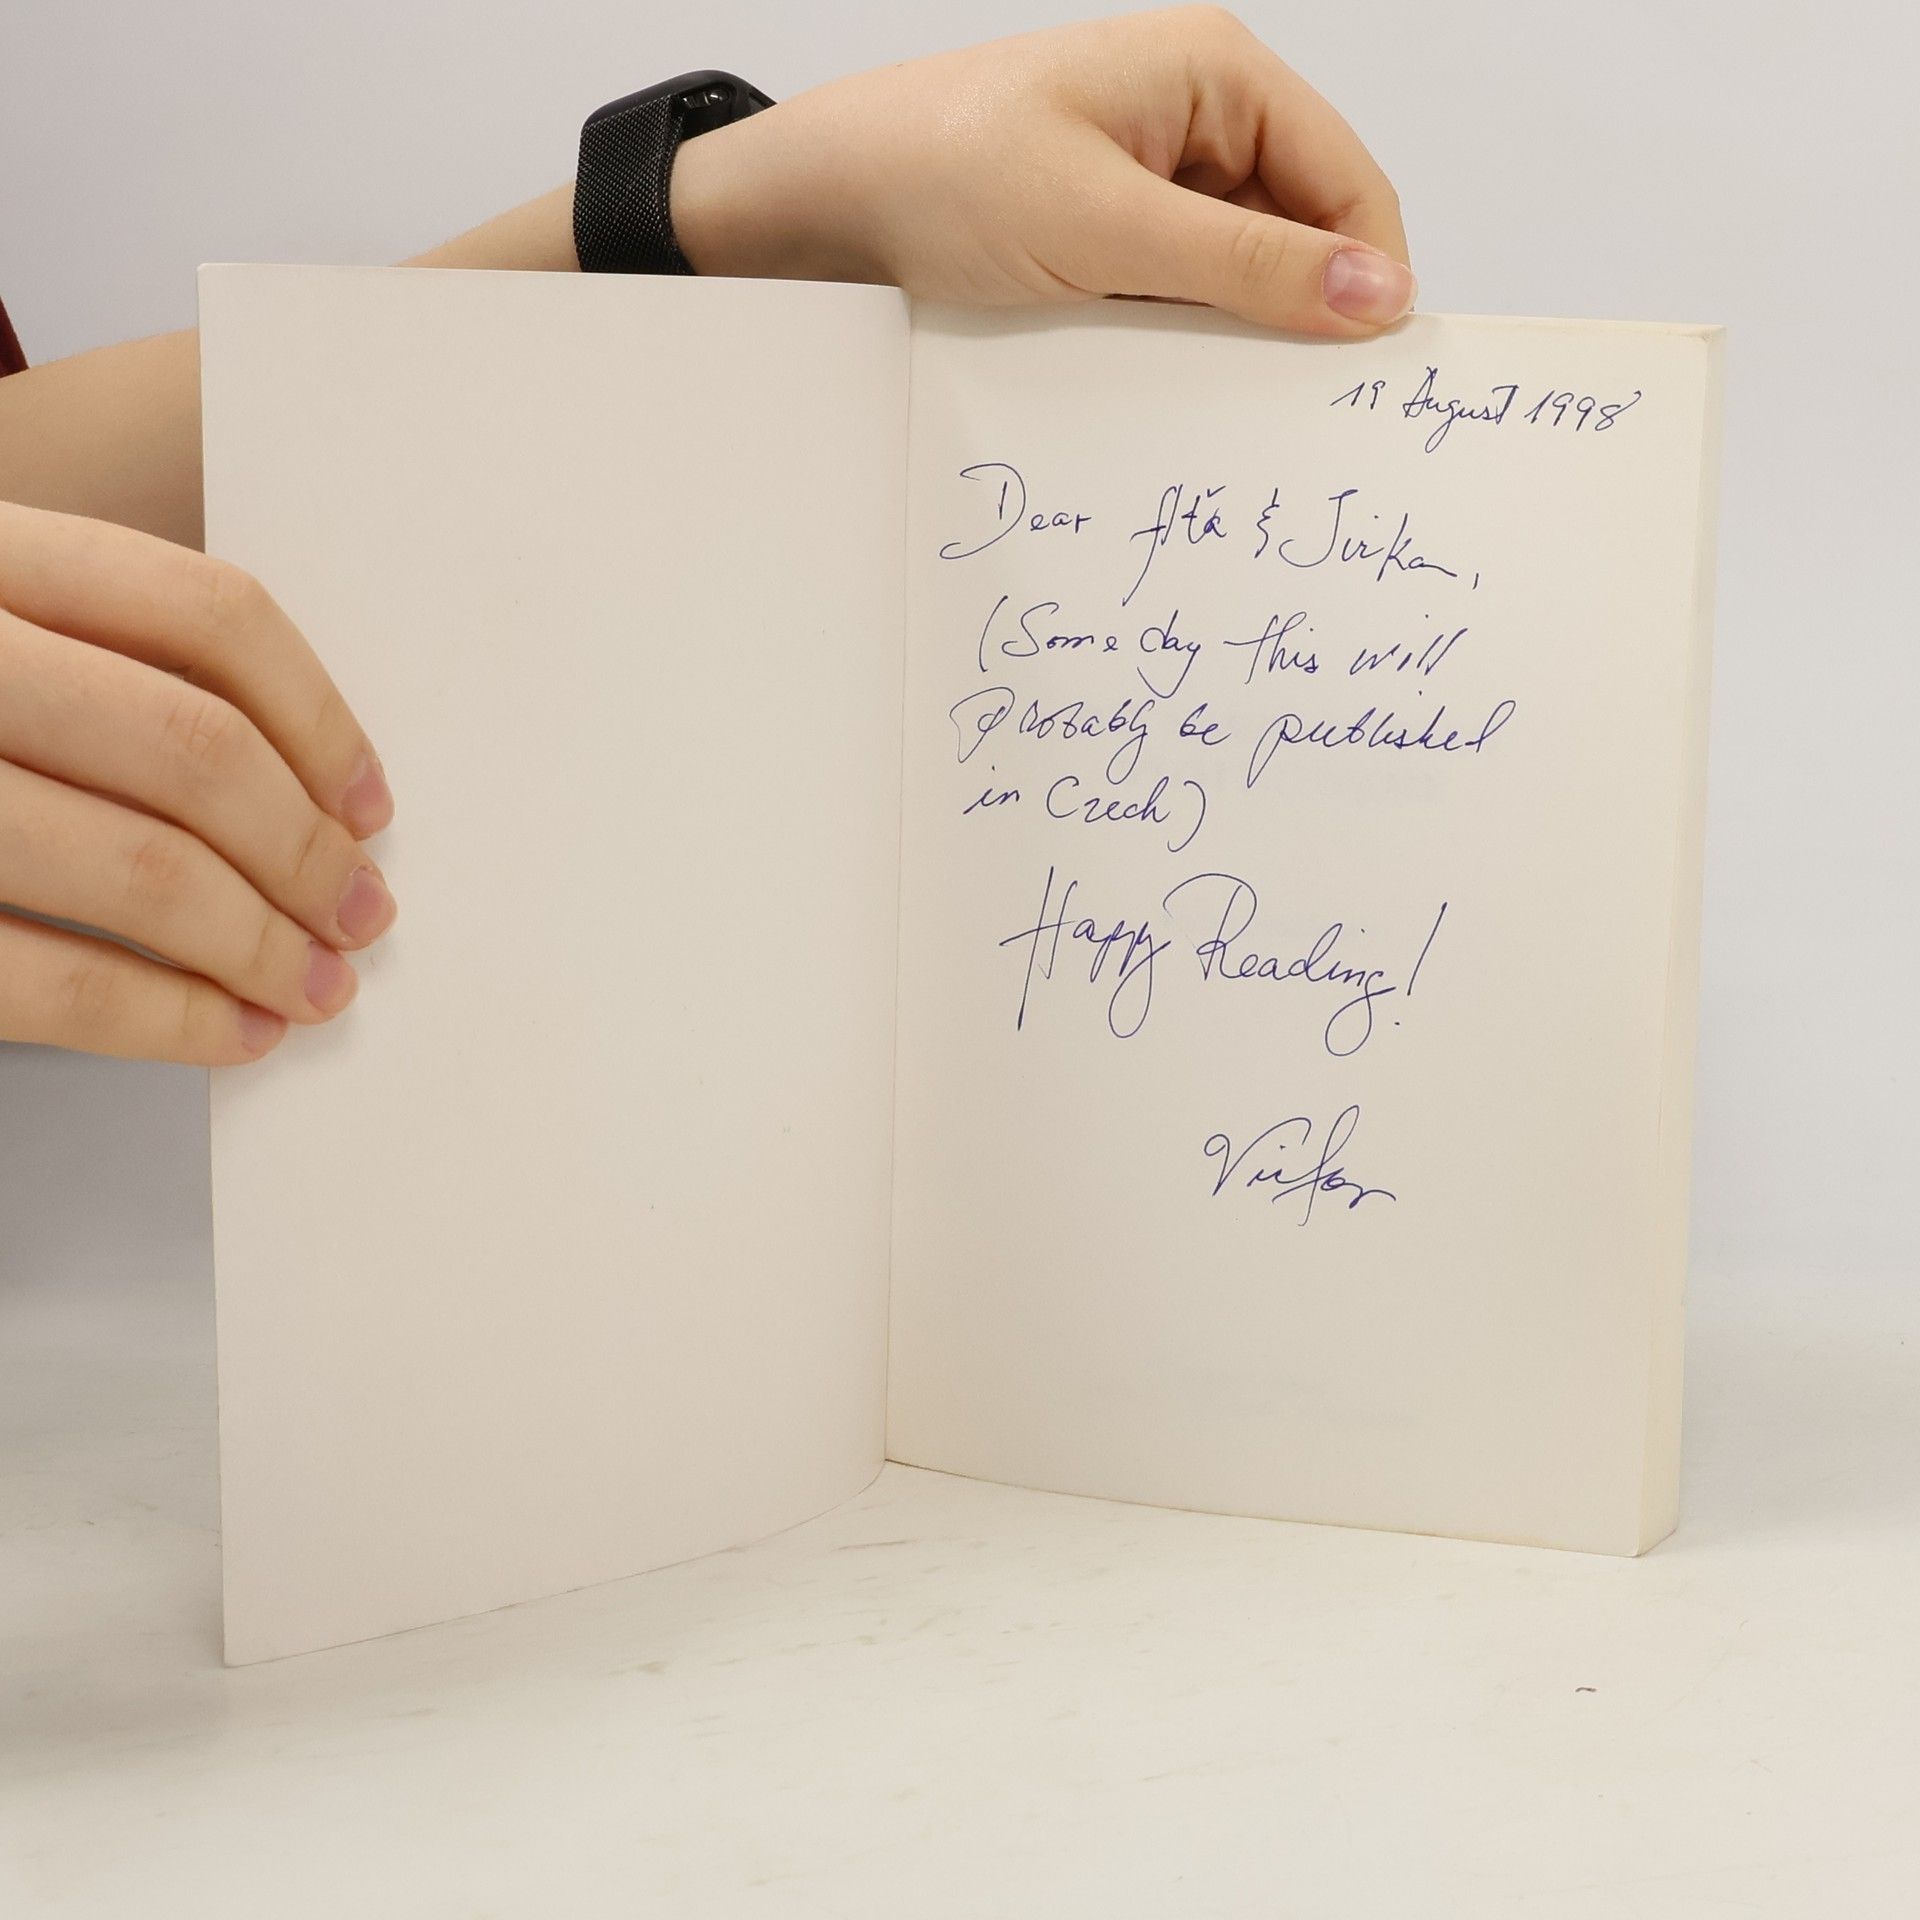 19 August 1998
Dear Áťa & Jirka,
(Some day this will
probably be published
in Czech)
Happy Reading!
Victor